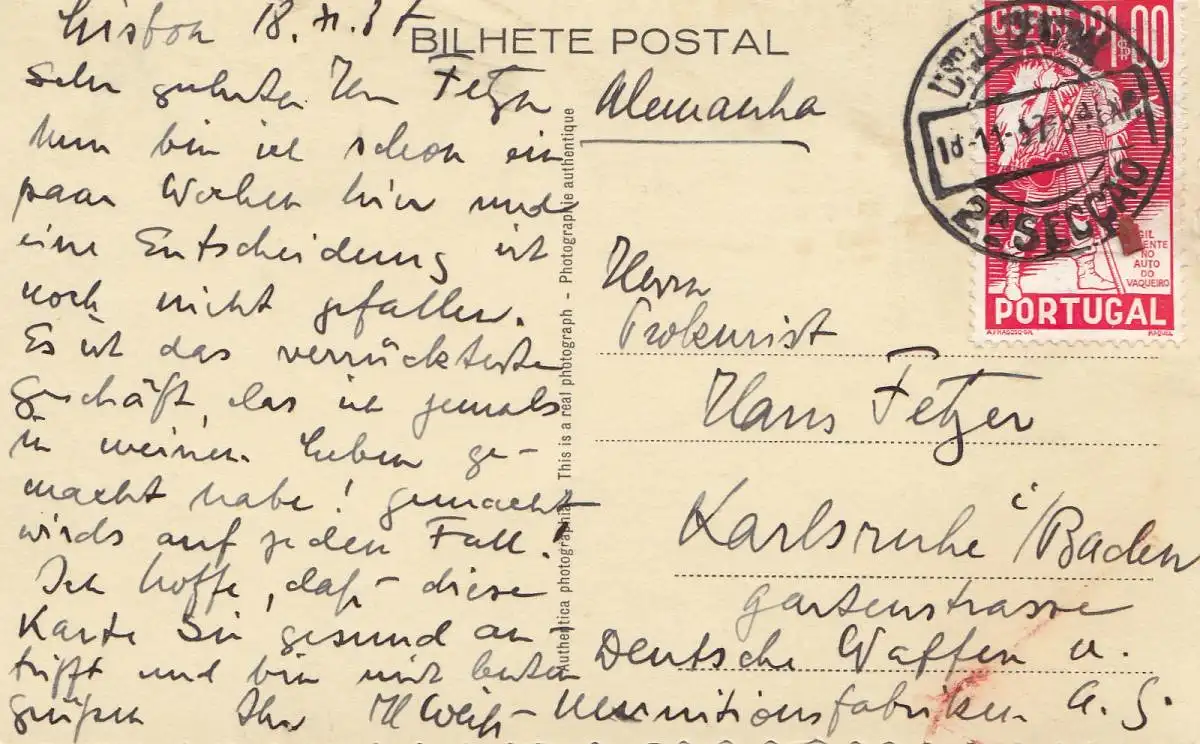 Lissboa 18.XI.37
BILHETE POSTAL
Sehr geehrter Herr Fetzer
Nun bin ich schon ein
paar Wochen hier und
eine Entscheidung ist
noch nicht gefallen.
Es ist das verrückteste
Geschäft, das ich jemals
in meinen Leben ge-
macht habe! gemacht
wirds auf jeden Fall!
Ich hoffe, daß diese
Karte Sie gesund an-
trifft und bin mit besten
grüßen Ihr Weiß
Authentica photographia - This is a real photograph - Photographie authentique
Alemanha
CORREIO 1$00
18-11-37
2A SECÇÃO
GIL
VICENTE
NO
AUTO
DO
VAQUEIRO
PORTUGAL
Herrn
Prokurist
Hans Fetzer
Karlsruhe i/Baden
Gartenstrasse
Deutsche Waffen u.
Munitionsfabriken A.G.